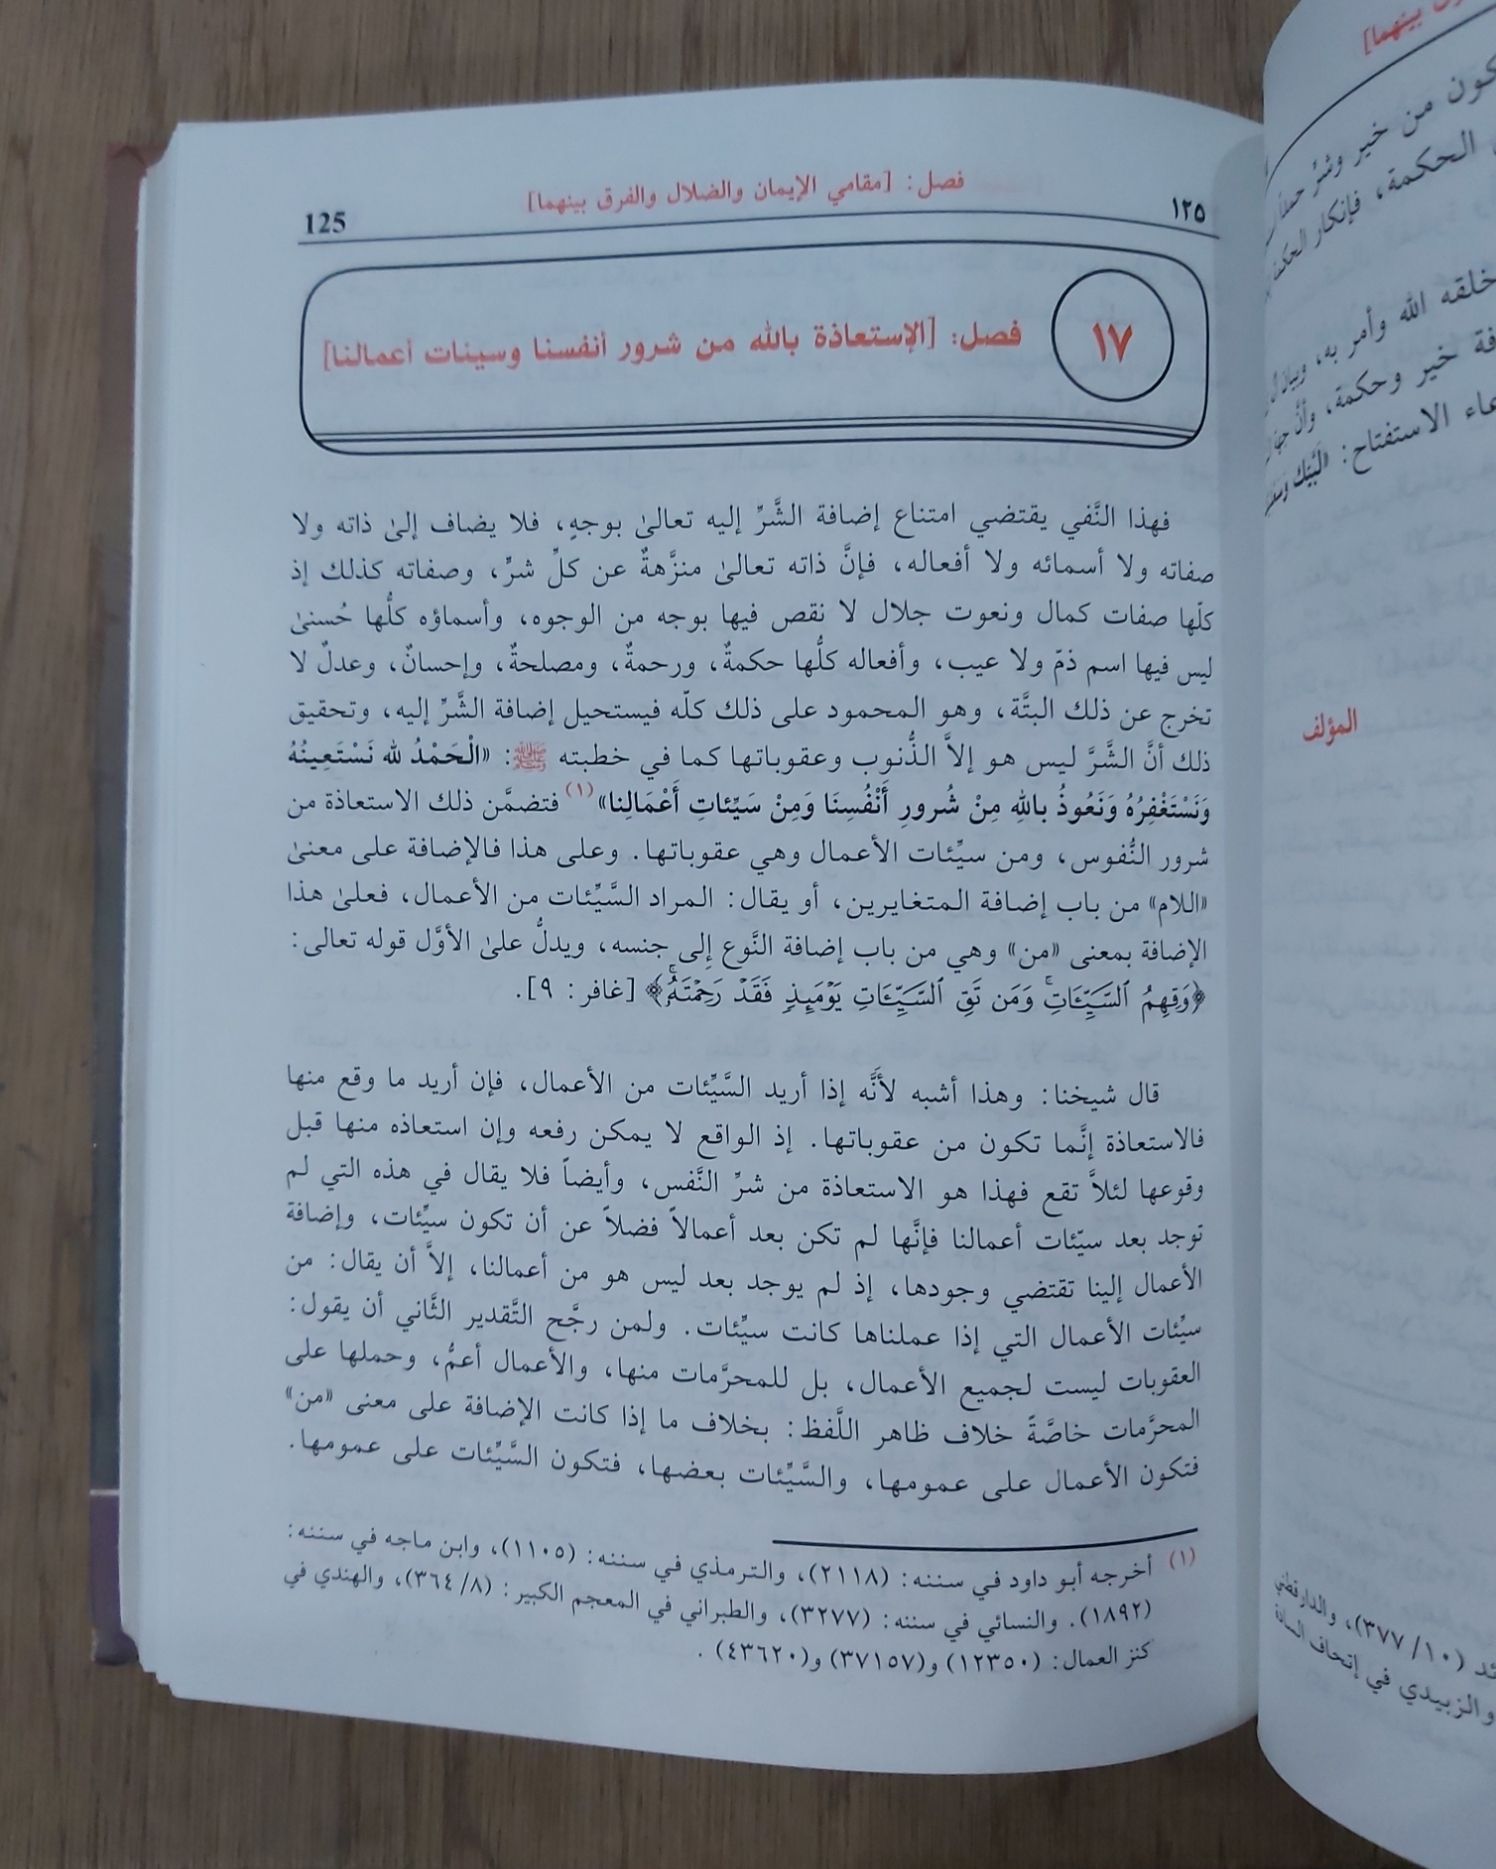 فصل: [مقامي الإيمان والضلال والفرق بينهما]
١٢٥
125
١٧
فصل: [الإستعاذة بالله من شرور أنفسنا وسيئات أعمالنا]
فهذا النَّفي يقتضي امتناع إضافة الشَّرِّ إليه تعالىٰ بوجهٍ، فلا يضاف إلىٰ ذاته ولا
صفاته ولا أسمائه ولا أفعاله، فإنَّ ذاته تعالىٰ منزَّهةٌ عن كلِّ شرٍّ، وصفاته كذلك إذ
كلّها صفات كمال ونعوت جلال لا نقص فيها بوجه من الوجوه، وأسماؤه كلُّها حُسنىٰ
ليس فيها اسم ذمّ ولا عيب، وأفعاله كلُّها حكمةٌ، ورحمةٌ، ومصلحةٌ، وإحسانٌ، وعدلٌ لا
تخرج عن ذلك البتَّة، وهو المحمود على ذلك كلّه فيستحيل إضافة الشَّرِّ إليه، وتحقيق
ذلك أنَّ الشَّرَّ ليس هو إلاَّ الذُّنوب وعقوباتها كما في خطبته ﷺ: «الْحَمْدُ لله نَسْتَعِينُهُ
وَنَسْتَغْفِرُهُ وَنَعُوذُ بالله مِنْ شُرورِ أَنْفُسِنَا وَمِنْ سَيِّئاتِ أَعْمَالِنا»(١) فتضمَّن ذلك الاستعاذة من
شرور النُّفوس، ومن سيِّئات الأعمال وهي عقوباتها. وعلى هذا فالإضافة على معنىٰ
«اللام» من باب إضافة المتغايرين، أو يقال: المراد السَّيِّئات من الأعمال، فعلىٰ هذا
الإضافة بمعنى «من» وهي من باب إضافة النَّوع إلى جنسه، ويدلُّ علىٰ الأوَّل قوله تعالى:
﴿وَقِهِمُ ٱلسَّيِّـَٔاتِۚ وَمَن تَقِ ٱلسَّيِّـَٔاتِ يَوْمَئِذٍ فَقَدْ رَحِمْتَهُۥۚ﴾ [غافر: ٩].
قال شيخنا: وهذا أشبه لأنَّه إذا أريد السَّيِّئات من الأعمال، فإن أريد ما وقع منها
فالاستعاذة إنَّما تكون من عقوباتها. إذ الواقع لا يمكن رفعه وإن استعاذه منها قبل
وقوعها لئلاَّ تقع فهذا هو الاستعاذة من شرِّ النَّفس، وأيضاً فلا يقال في هذه التي لم
توجد بعد سيِّئات أعمالنا فإنَّها لم تكن بعد أعمالاً فضلاً عن أن تكون سيِّئات، وإضافة
الأعمال إلينا تقتضي وجودها، إذ لم يوجد بعد ليس هو من أعمالنا، إلاَّ أن يقال: من
سيِّئات الأعمال التي إذا عملناها كانت سيِّئات. ولمن رجَّح التَّقدير الثَّاني أن يقول:
العقوبات ليست لجميع الأعمال، بل للمحرَّمات منها، والأعمال أعمُّ، وحملها على
المحرَّمات خاصَّةً خلاف ظاهر اللَّفظ: بخلاف ما إذا كانت الإضافة على معنى «من»
فتكون الأعمال على عمومها، والسَّيِّئات بعضها، فتكون السَّيِّئات على عمومها.
(١) أخرجه أبو داود في سننه: (٢١١٨)، والترمذي في سننه: (١١٠٥)، وابن ماجه في سننه:
(١٨٩٢). والنسائي في سننه: (٣٢٧٧)، والطبراني في المعجم الكبير: (٣٦٤/٨)، والهندي في
كنز العمال: (١٢٣٥٠) و(٣٧١٥٧) و(٤٣٦٢٠).
بينهما]
كون من خير وشرٍّ
الحكمة، فإنكار
خلقه الله وأمر به،
خير وحكمة،
الاستفتاح: «لَبَّيْكَ
المؤلف
(٣٧٧/١٠)، والدارقطني
والزبيدي في إتحاف السادة